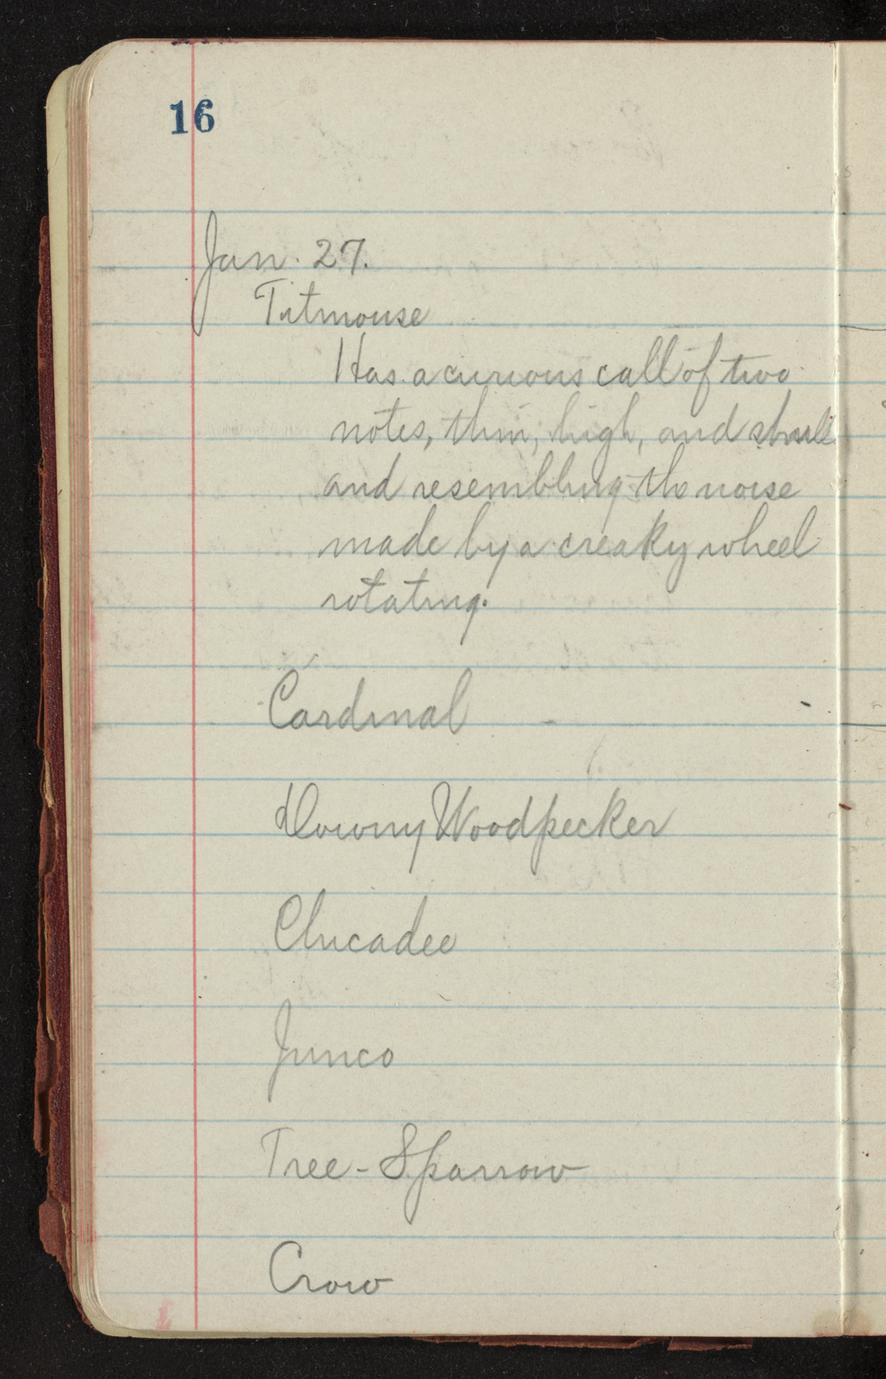 16
Jan. 27.
Titmouse
Has a curious call of two
notes, thin, high, and shrill
and resembling the noise
made by a creaky wheel
rotating.
Cardinal
Downy Woodpecker
Chicadee
Junco
Tree-Sparrow
Crow